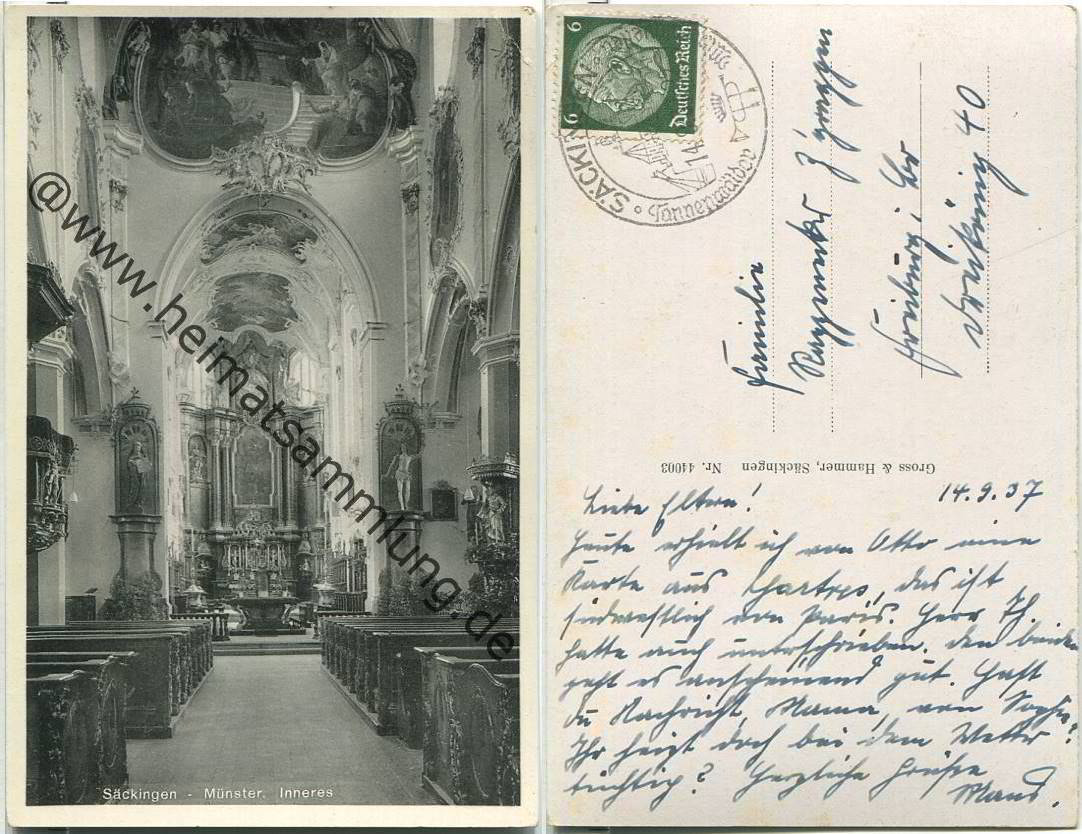 @www.heimatsammlung.de
Säckingen - Münster. Inneres
6 6
Deutsches Reich
SÄCKINGEN
Tannenwälder
Familie
Freiburg i/Br
Dreikönig 40
Gross & Hammer, Säckingen Nr. 44003
14.9.37
Liebe Eltern!
Heute erhielt ich von Otto eine
Karte aus Chartres, das ist
südwestlich von Paris. Herr Th.
hatte auch unterschrieben. Den beiden
geht es anscheinend gut. Hast
du Nachricht, Mama, von Sophie?
Ihr heizt doch bei dem Wetter
tüchtig? Herzliche Grüße